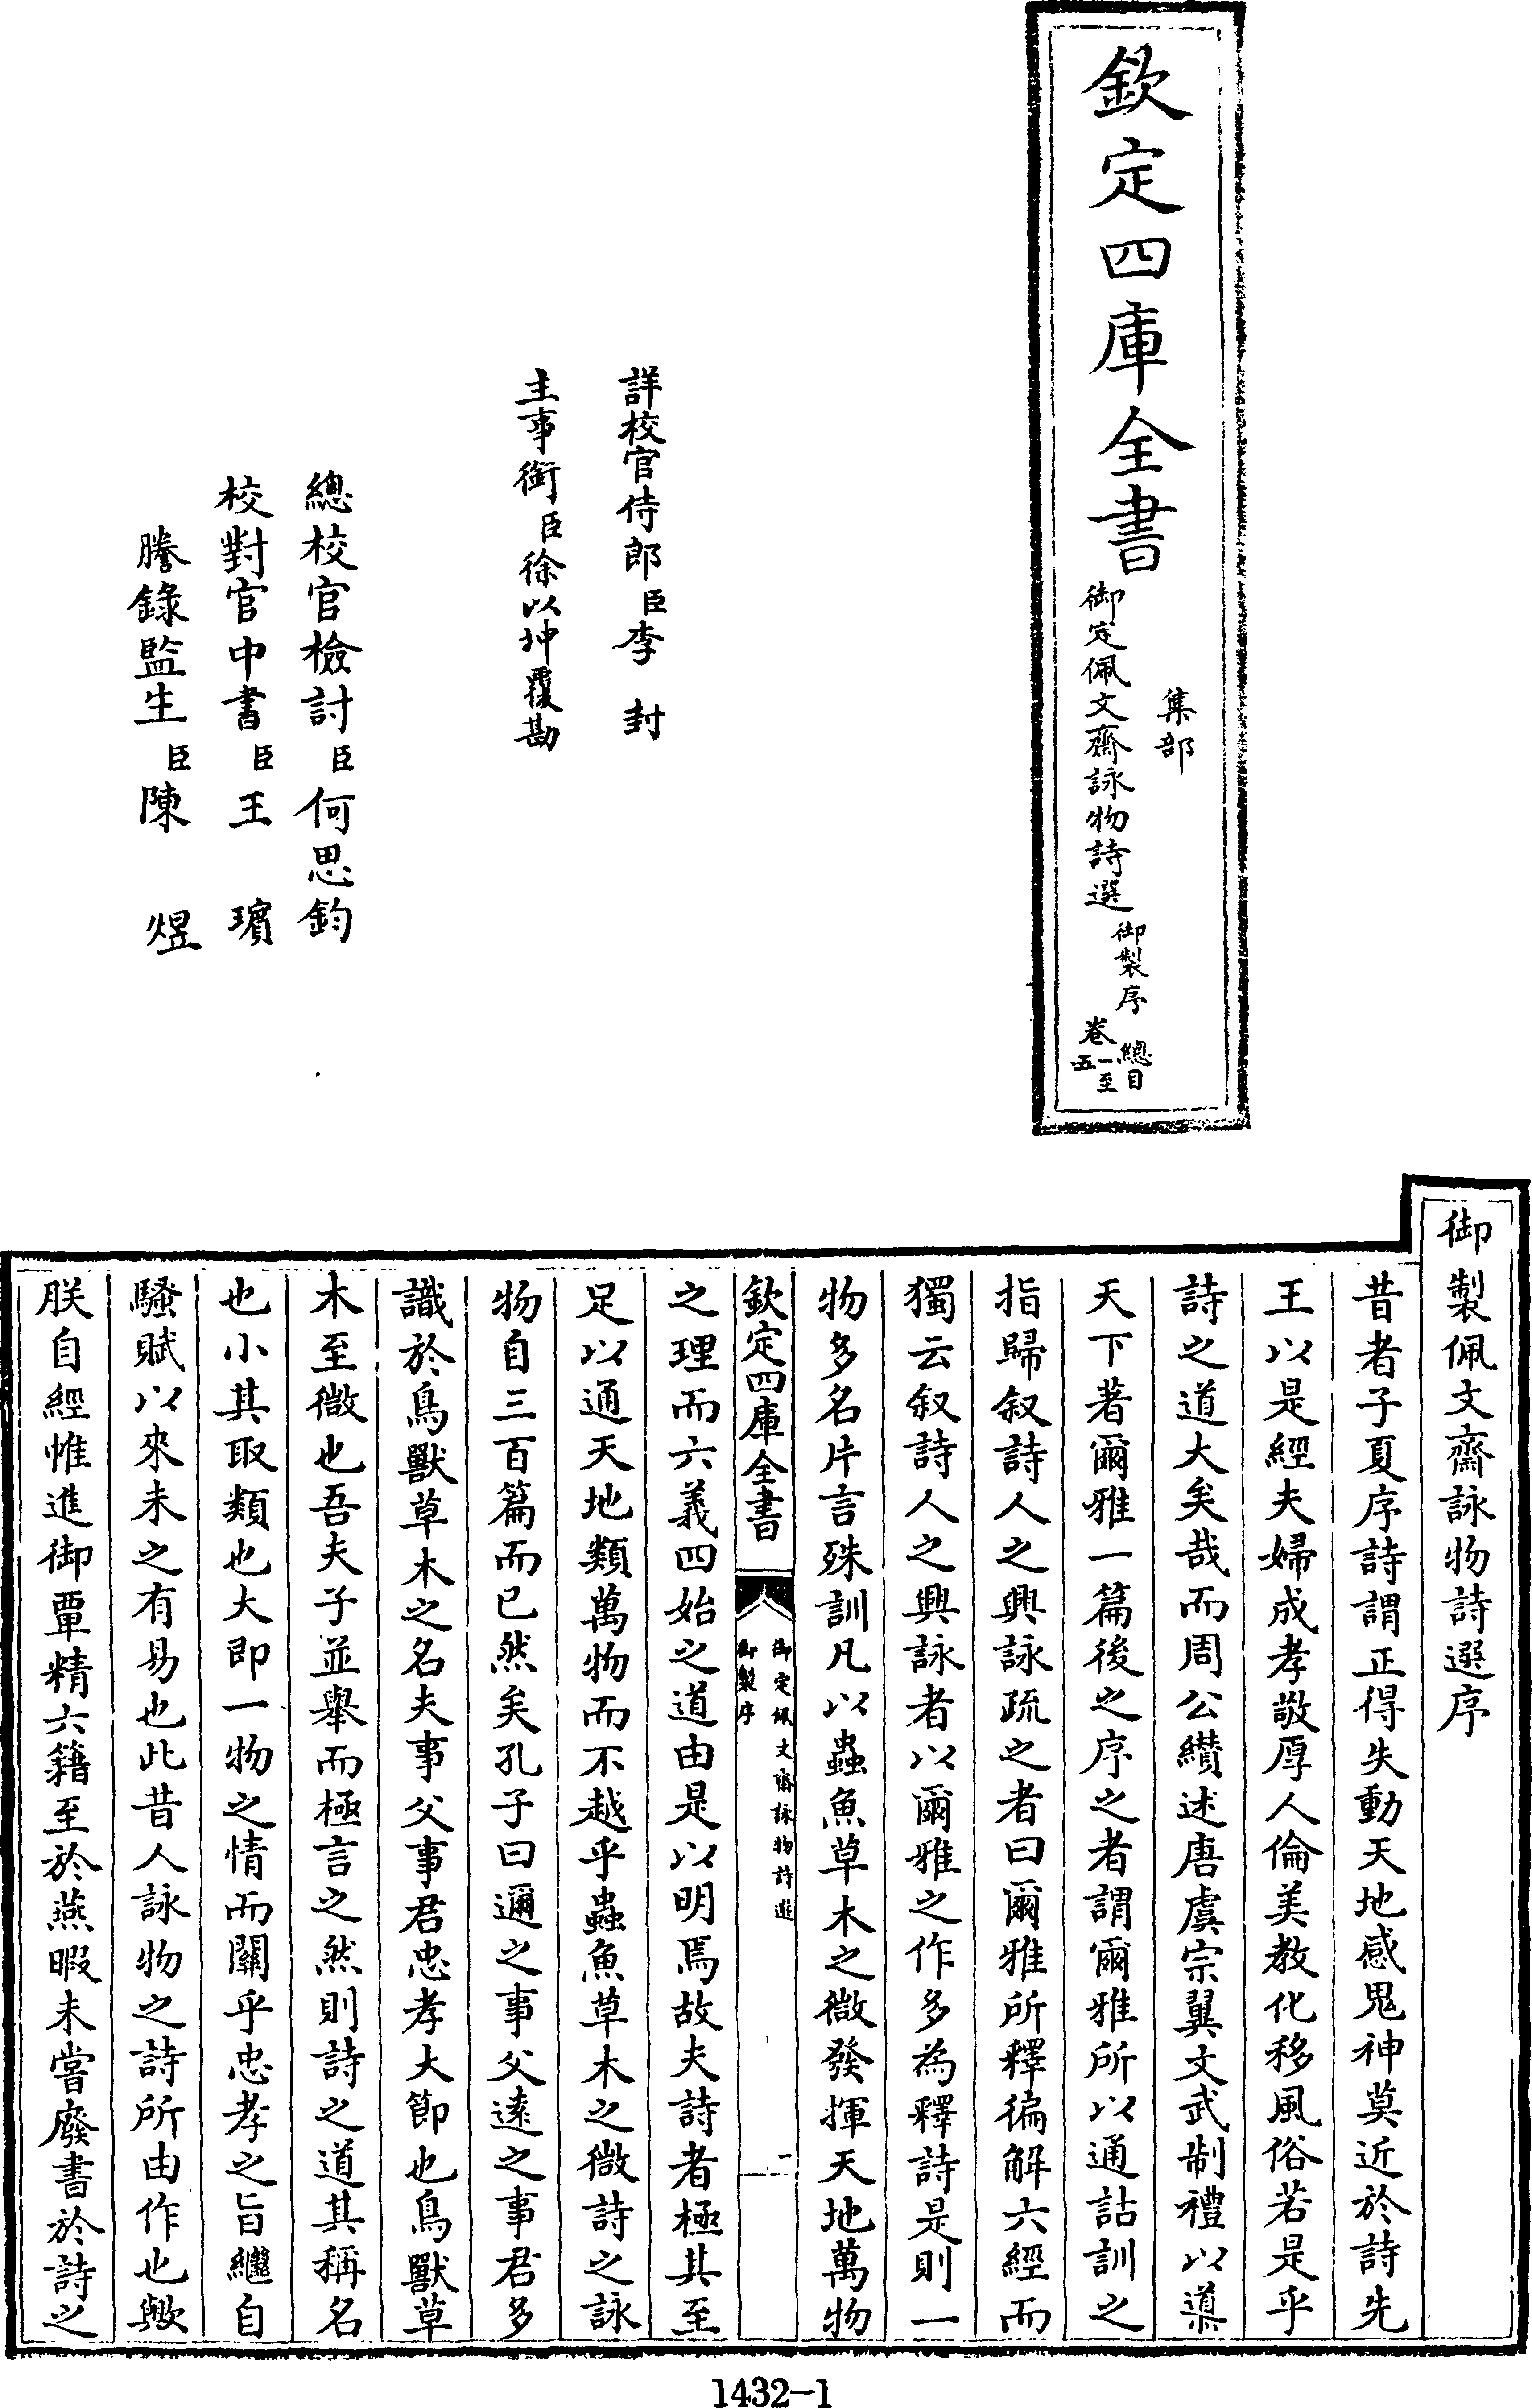 欽定四庫全書
集部
御定佩文齋詠物詩選
御製序
總目
卷一至五
詳校官侍郎臣李封
主事銜臣徐以坤覆勘
總校官檢討臣何思鈞
校對官中書臣王璸
謄錄監生臣陳煜
御製佩文齋詠物詩選序
昔者子夏序詩謂正得失動天地感鬼神莫近於詩先
王以是經夫婦成孝敬厚人倫美教化移風俗若是乎
詩之道大矣哉而周公纘述唐虞宗翼文武制禮以導
天下著爾雅一篇後之序之者謂爾雅所以通詁訓之
指歸叙詩人之興詠疏之者曰爾雅所釋徧解六經而
獨云叙詩人之興詠者以爾雅之作多為釋詩是則一
物多名片言殊訓凡以蟲魚草木之微發揮天地萬物
欽定四庫全書
御定佩文齋詠物詩選
御製序
一
之理而六義四始之道由是以明焉故夫詩者極其至
足以通天地類萬物而不越乎蟲魚草木之微詩之詠
物自三百篇而已然矣孔子曰邇之事父遠之事君多
識於鳥獸草木之名夫事父事君忠孝大節也鳥獸草
木至微也吾夫子並舉而極言之然則詩之道其稱名
也小其取類也大即一物之情而關乎忠孝之旨繼自
騷賦以來未之有易也此昔人詠物之詩所由作也歟
朕自經帷進御覃精六籍至於燕暇未嘗廢書於詩之
1432-1